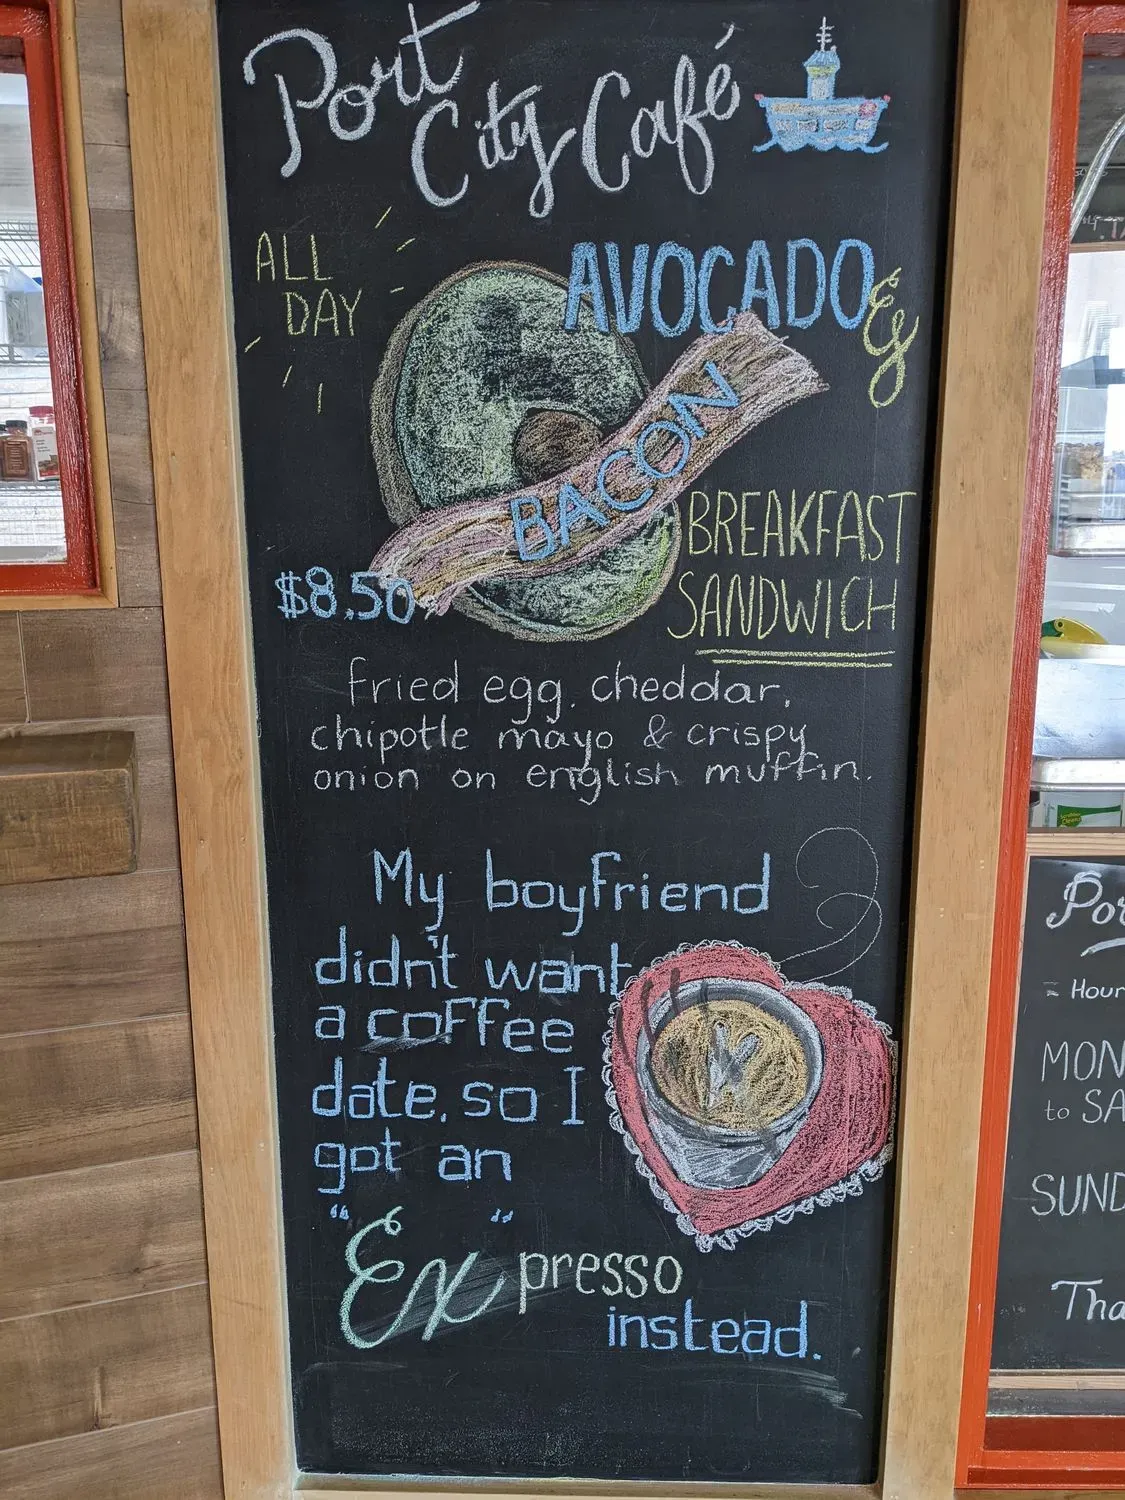 Port
City Café
ALL
DAY
AVOCADO &
BACON
BREAKFAST
SANDWICH
$8.50
fried egg, cheddar,
chipotle mayo & crispy
onion on english muffin.
My boyfriend
didn't want
a coffee
date, so I
got an
"Ex" presso
instead.
Por
Hour
MON
to SA
SUND
Tha